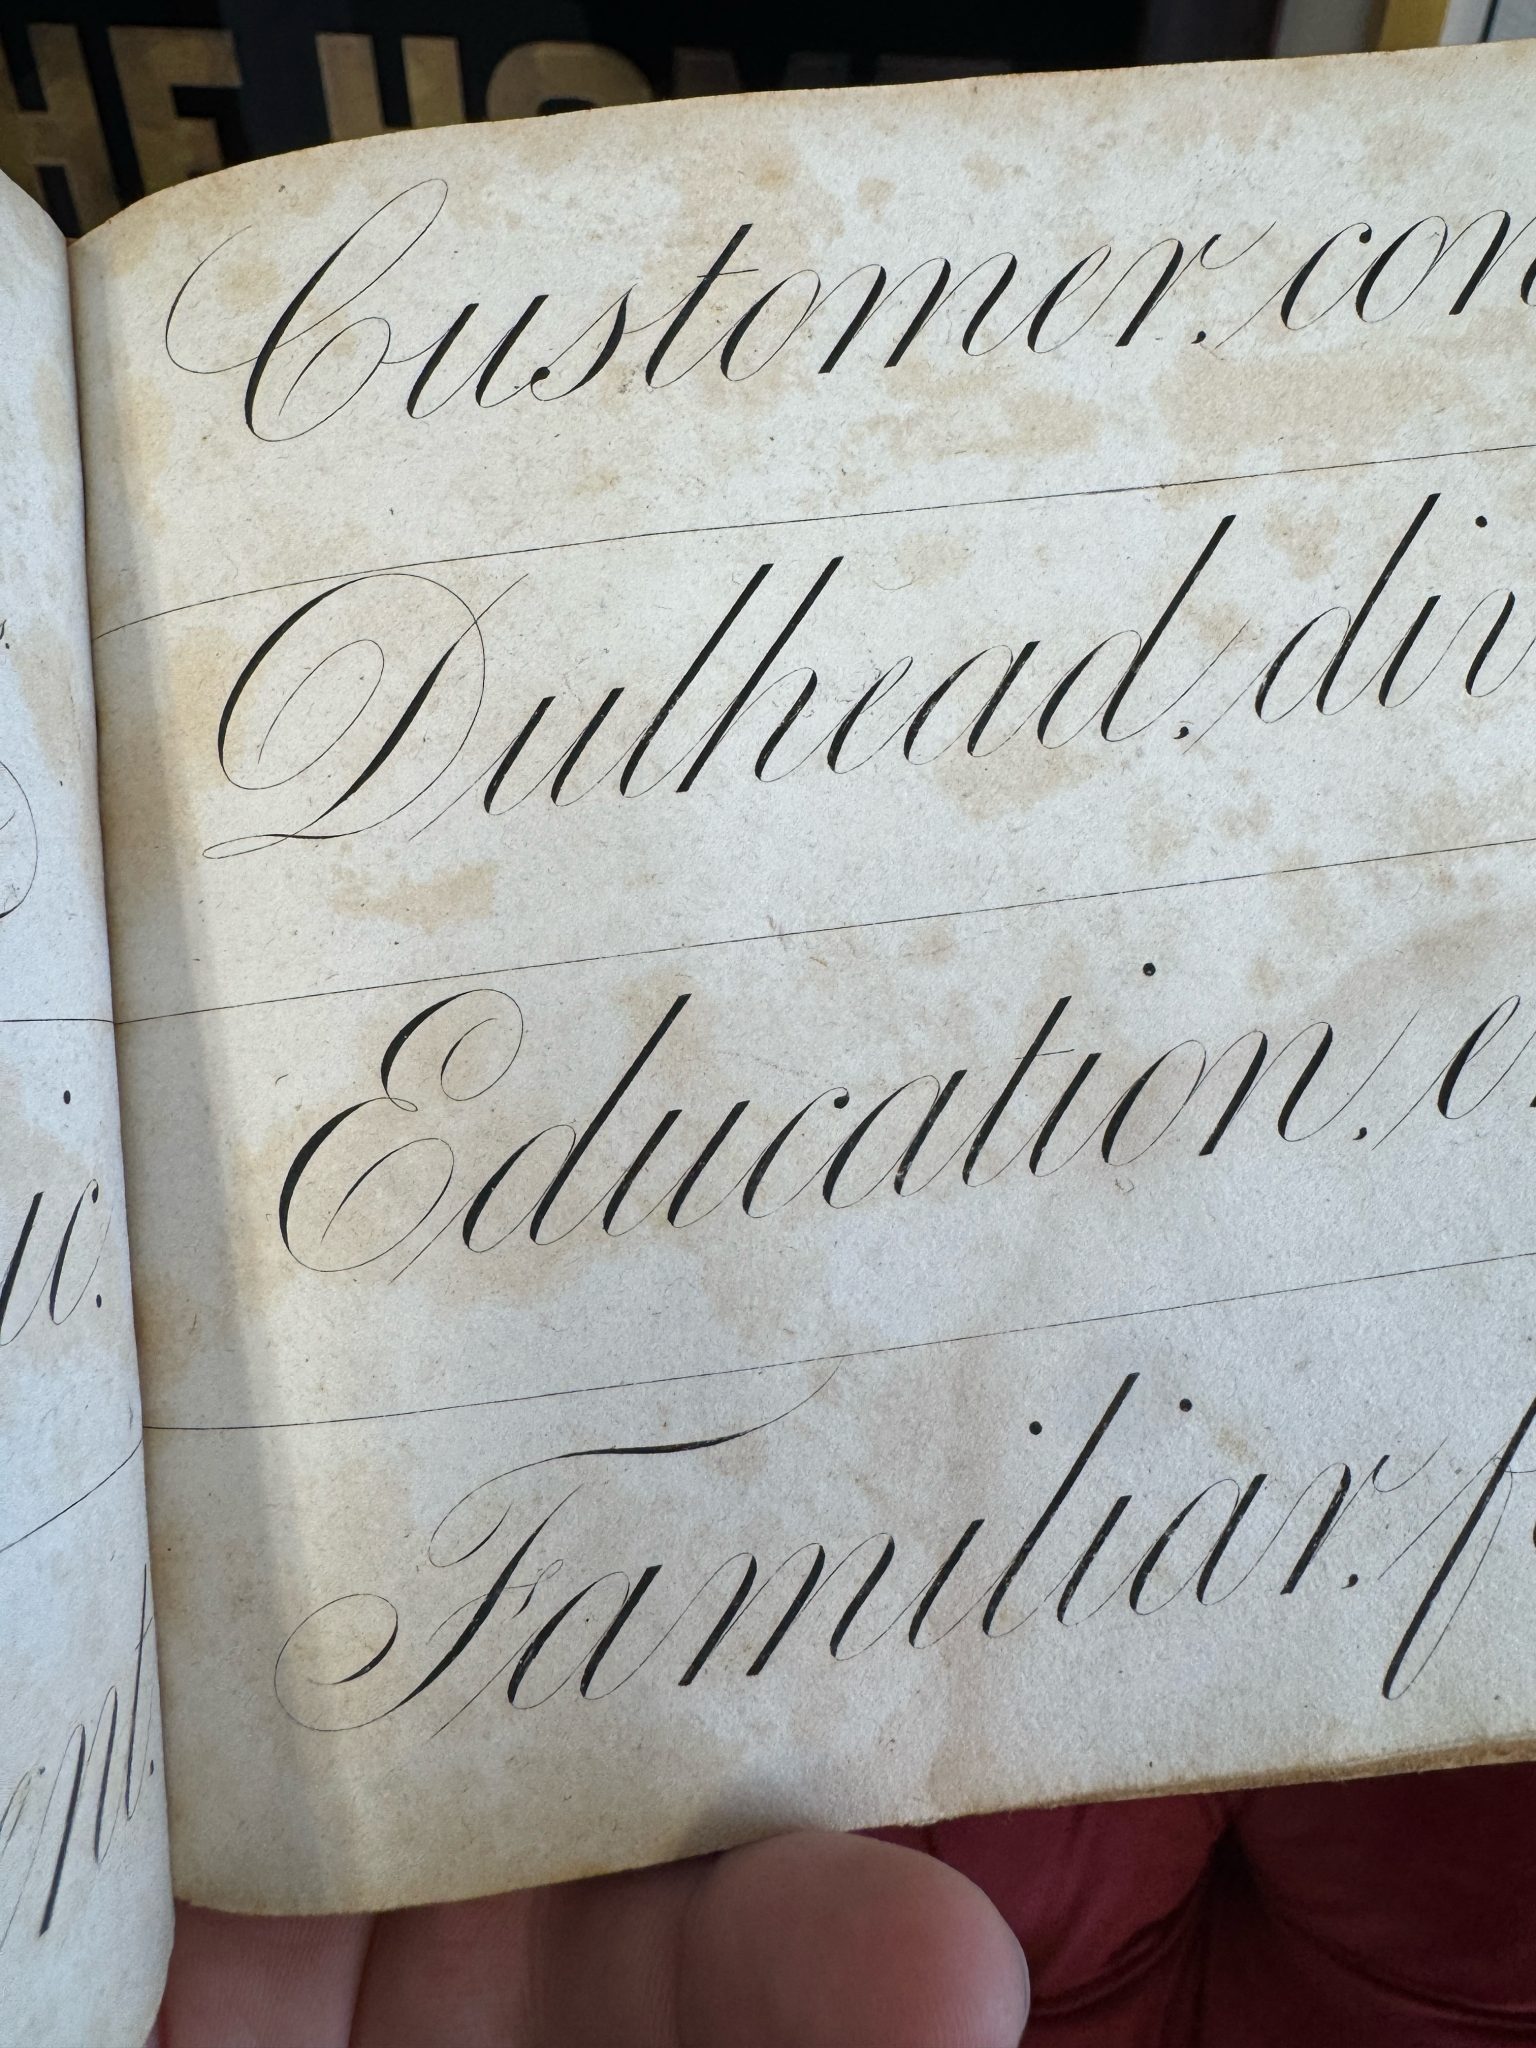 THE HOME
Customer. con
Dulhead. div
Education. e
Familiar. f